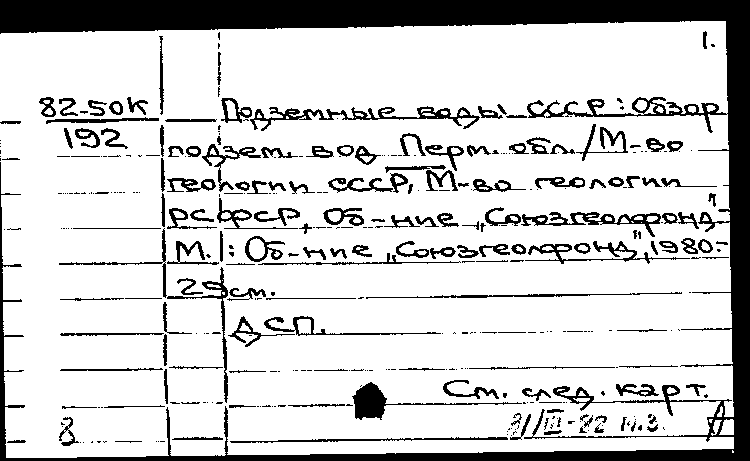 1.
82-50К
192
Подземные воды СССР: Обзор
подзем. вод Перм. обл./М-во
геологии СССР, М-во геологии
РСФСР, Об-ние „Союзгеолфонд"-
М.: Об-ние „Союзгеолфонд", 1980-
29см.
ДСП.
См. след. карт.
31/III-82 М.З.
8